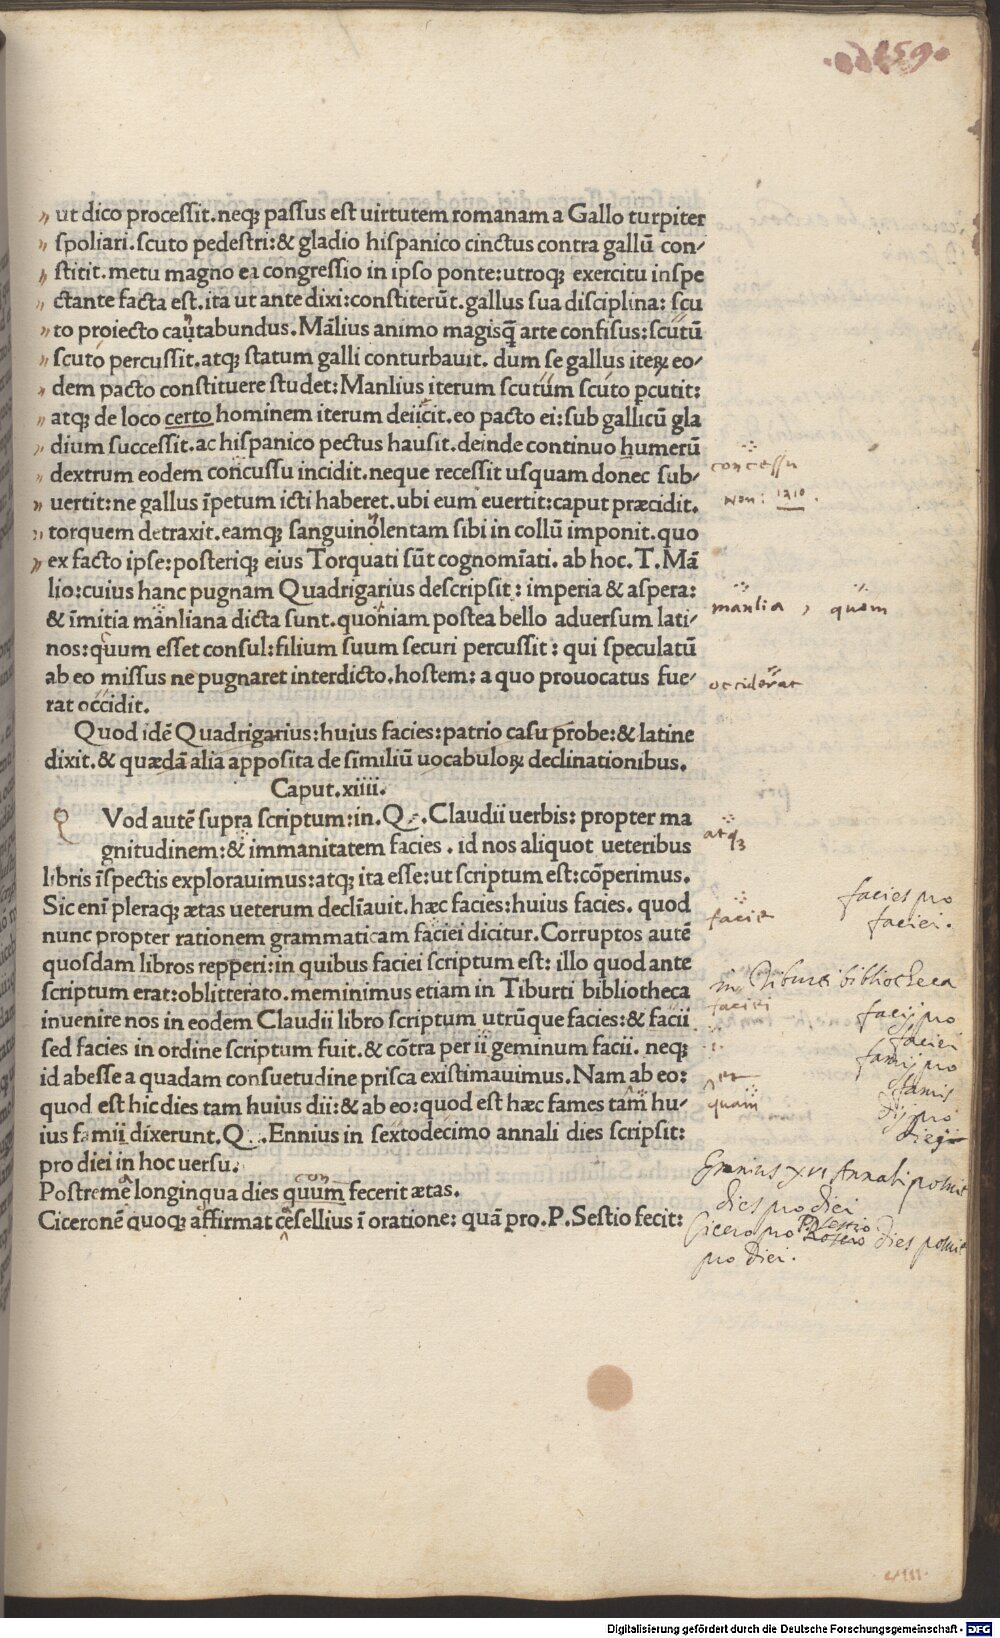 ut dico processit. neq; passus est uirtutem romanam a Gallo turpiter
spoliari. scuto pedestri: & gladio hispanico cinctus contra gallū con-
stitit. metu magno ea congressio in ipso ponte: utroq; exercitu inspe
ctante facta est. ita ut ante dixi: constiterūt. gallus sua disciplina: scu
to proiecto cautabundus. Mālius animo magisq̄ arte confisus: scutū
scuto percussit. atq; statum galli conturbauit. dum se gallus iteꝝ eo-
dem pacto constituere studet: Manlius iterum scutum scuto pcutit:
atq; de loco certo hominem iterum deiicit. eo pacto ei: sub gallicū gla
dium successit. ac hispanico pectus hausit. deinde continuo humerū
dextrum eodem concussu incidit. neque recessit usquam donec sub-
uertit: ne gallus īpetum icti haberet. ubi eum euertit: caput præcidit.
torquem detraxit. eamq; sanguinolentam sibi in collū imponit. quo
ex facto ipse: posteriq; eius Torquati sūt cognomīati. ab hoc. T. Mā
lio: cuius hanc pugnam Quadrigarius descripsit: imperia & aspera:
& īmitia manliana dicta sunt. quoniam postea bello aduersum lati-
nos: quum esset consul: filium suum securi percussit: qui speculatū
ab eo missus ne pugnaret interdicto. hostem: a quo prouocatus fue-
rat occidit.
Quod idē Quadrigarius: huius facies: patrio casu probe: & latine
dixit. & quædā alia apposita de similiū uocabuloꝝ declinationibus.
Caput. xiiii.
Q
Vod autē supra scriptum: in. Q. Claudii uerbis: propter ma
gnitudinem: & immanitatem facies. id nos aliquot ueteribus
libris īspectis explorauimus: atq; ita esse: ut scriptum est: cōperimus.
Sic enī pleraq; ætas ueterum declīauit. hæc facies: huius facies. quod
nunc propter rationem grammaticam faciei dicitur. Corruptos autē
quosdam libros repperi: in quibus faciei scriptum est: illo quod ante
scriptum erat: oblitterato. meminimus etiam in Tiburti bibliotheca
inuenire nos in eodem Claudii libro scriptum utrūque facies: & facii
sed facies in ordine scriptum fuit. & cōtra per ii geminum facii. neq;
id abesse a quadam consuetudine prisca existimauimus. Nam ab eo:
quod est hic dies tam huius dii: & ab eo: quod est hæc fames tam hu-
ius famii dixerunt. Q. Ennius in sextodecimo annali dies scripsit:
pro diei in hoc uersu.
Postremē longinqua dies quum fecerit ætas.
Ciceronē quoq; affirmat cesellius ī oratione: quā pro. P. Sestio fecit:
concessu
non:
manlia, quom
occiderat
atq;
facie
facies pro
faciei.
in Tiburti bibliotheca
faciei
facij pro
faciei
famij pro
famis
dij pro
diei
et
quam
con
Ennius xvi Annali posuit
dies pro diei
Cicero pro P. Sestio dies posuit
pro diei.
Digitalisierung gefördert durch die Deutsche Forschungsgemeinschaft - DFG